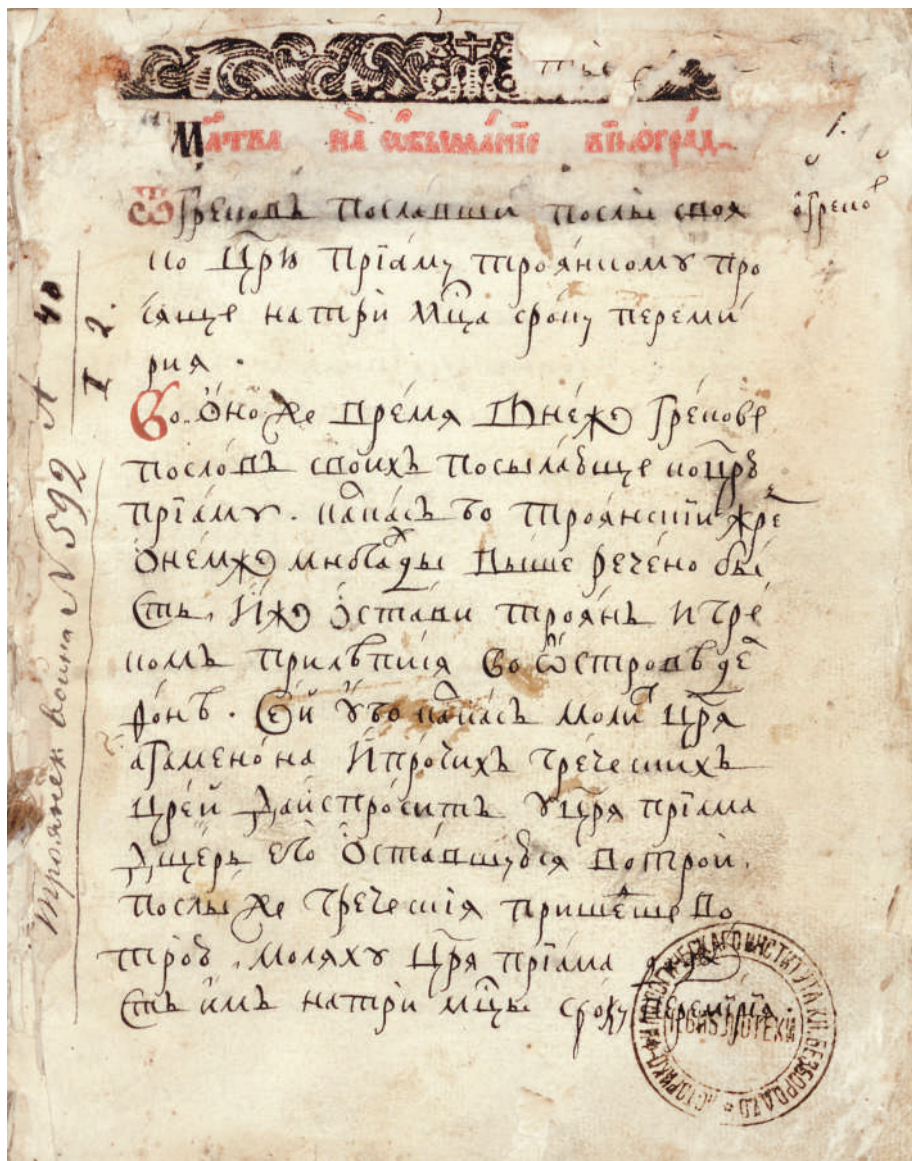 Мл҃тва на собиранїе виногрáд
Ѿ Грековъ пославши послы своя
ко Цр҃ю Прїаму троянкому про
сяще на три мц҃а сроку переми
рия .
Во о́но же время внегда Грекове
пословъ своихъ посылающе ко цр҃ю
прїаму . ка́лкасъ бо троянскїи жре
о́немже выше рече́но бы́
сть, и́же остави троянъ и гре
комъ прилѣпися во ѻстровѣ де
фонѣ . Се́й у́бо ка́лкасъ моли цр҃я
агамено́на и прочихъ греческихъ
цр҃ей да испро́ситъ у цр҃я прїама
дщерь его оставшуюся во трои .
Послы же греческїя прише́дше во
тро́ю , моляху цр҃я прїама
сть имъ на три мц҃ы сроку перемирїя .
1.
Троянск. война N 592
А 40
I 2.
ИСТОРИКО-ФИЛОЛОГИЧЕСКАГО ИНСТИТУТА КН. БЕЗБОРОДКО
БИБЛІОТЕКИ